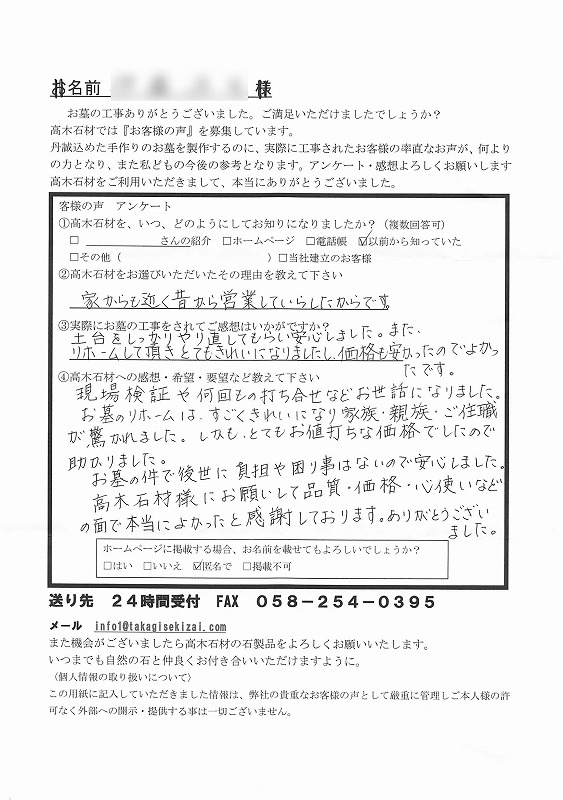 お名前 様
お墓の工事ありがとうございました。ご満足いただけましたでしょうか？
高木石材では『お客様の声』を募集しています。
丹誠込めた手作りのお墓を製作するのに、実際に工事されたお客様の率直なお声が、何より
の力となり、また私どもの今後の参考となります。アンケート・感想よろしくお願いします
高木石材をご利用いただきまして、本当にありがとうございました。
客様の声 アンケート
①高木石材を、いつ、どのようにしてお知りになりましたか？（複数回答可）
□ さんの紹介 □ホームページ □電話帳 ☑以前から知っていた
□その他（ ）□当社建立のお客様
②高木石材をお選びいただいたその理由を教えて下さい
家からも近く昔から営業していらしたからです。
③実際にお墓の工事をされてご感想はいかがですか？
土台をしっかりやり直してもらい安心しました。また、
リホームして頂きとてもきれいになりましたし、価格も安かったのでよかっ
たです。
④高木石材への感想・希望・要望など教えて下さい
現場検証や何回もの打ち合せなどお世話になりました。
お墓のリホームは、すごくきれいになり家族・親族・ご住職
が驚かれました。しかも、とてもお値打ちな価格でしたので
助かりました。
お墓の件で後世に負担や困り事はないので安心しました。
高木石材様にお願いして品質・価格・心使いなど
の面で本当によかったと感謝しております。ありがとうござい
ました。
ホームページに掲載する場合、お名前を載せてもよろしいでしょうか？
□はい □いいえ ☑匿名で □掲載不可
送り先 ２４時間受付 FAX ０５８－２５４－０３９５
メール info1@takagisekizai.com
また機会がございましたら高木石材の石製品をよろしくお願いいたします。
いつまでも自然の石と仲良くお付き合いいただけますように。
〈個人情報の取り扱いについて〉
この用紙に記入していただきました情報は、弊社の貴重なお客様の声として厳重に管理しご本人様の許
可なく外部への開示・提供する事は一切ございません。